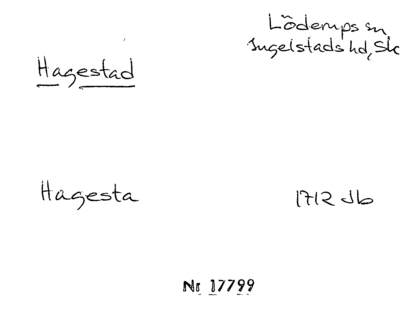 Löderups sn,
Ingelstads hd, Sk
Hagestad
Hagesta
1712 Jb
Nr 17799